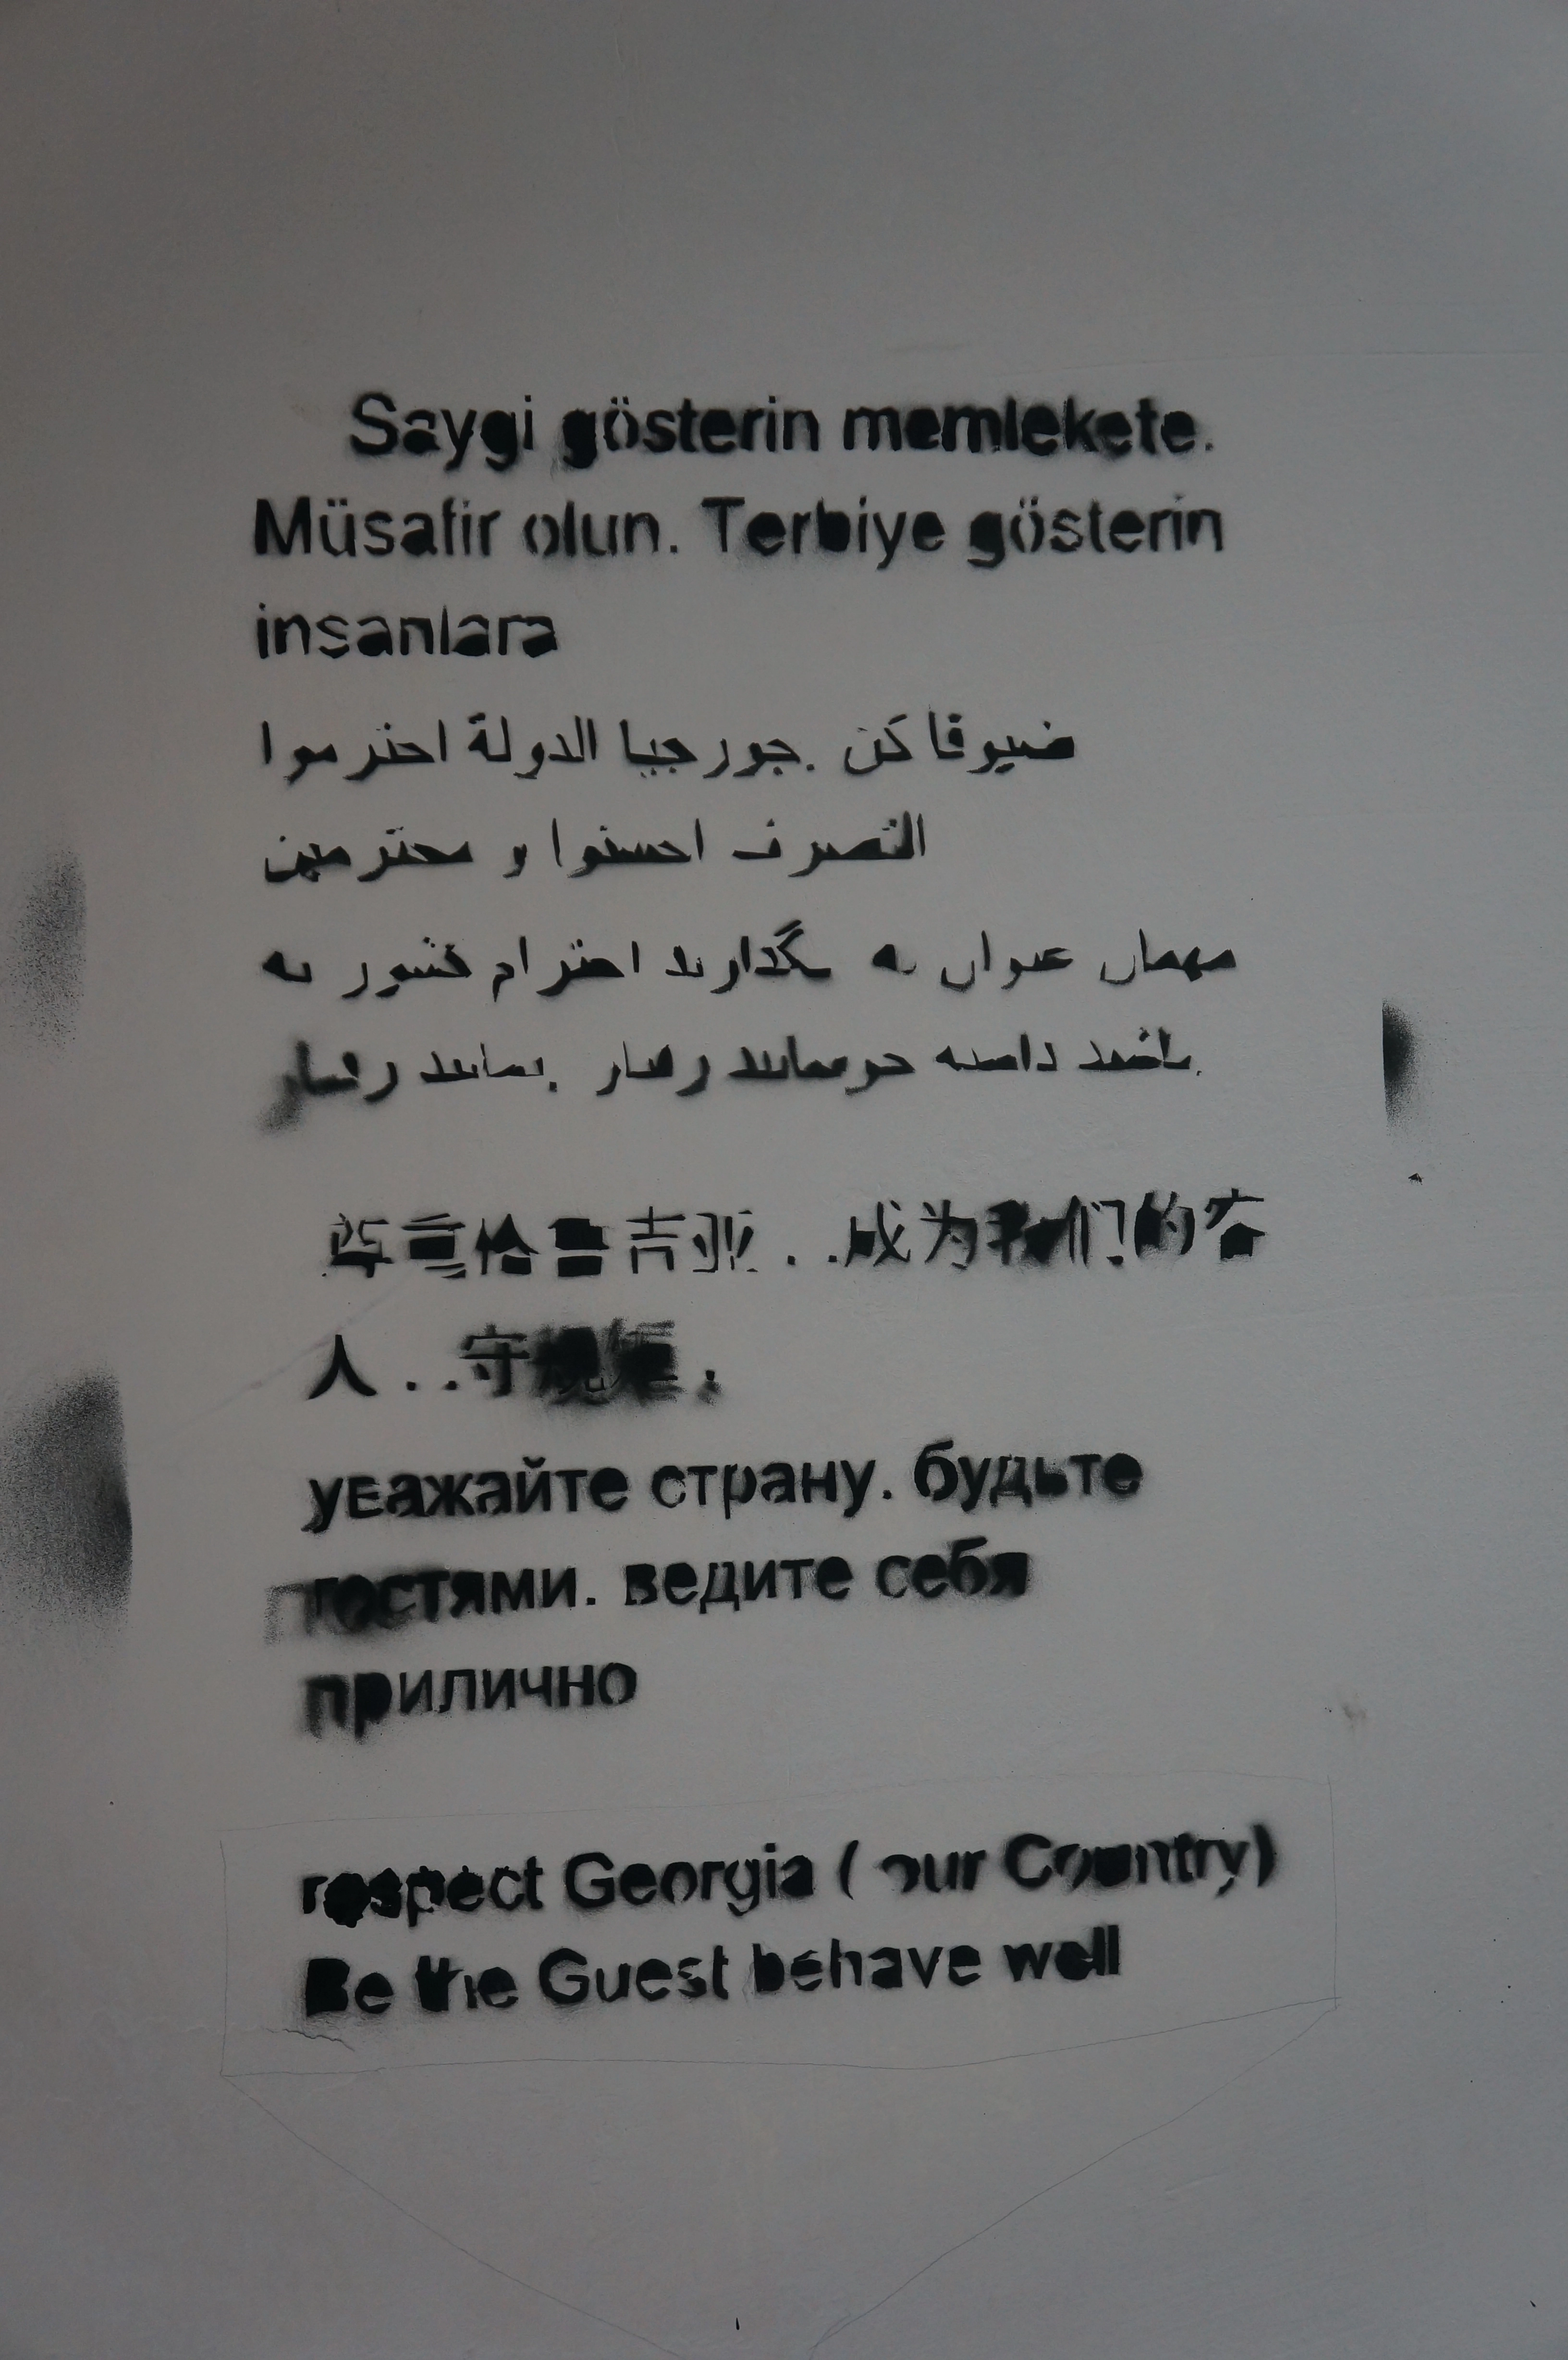 Saygi gösterin memlekete.
Müsafir olun. Terbiye gösterin
insanlara
ضيوفا كن .جورجيا الدولة احترموا
التصرف احسنوا و محترمين
مهمان عنوان به بگذارید احترام کشور به
باشید داشته رفتار . رفتار
尊重格鲁吉亚. .成为我们的客
人. .守规矩.
уважайте страну. будьте
гостями. ведите себя
прилично
respect Georgia ( our Country)
Be the Guest behave well